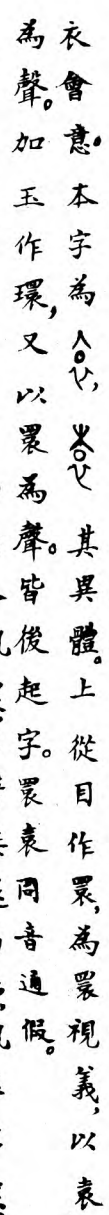 衣會意。本字為，其異體。上從目作睘，為睘視義，以袁
為聲。加玉作環，又以睘為聲。皆後起字。睘袁同音通假。